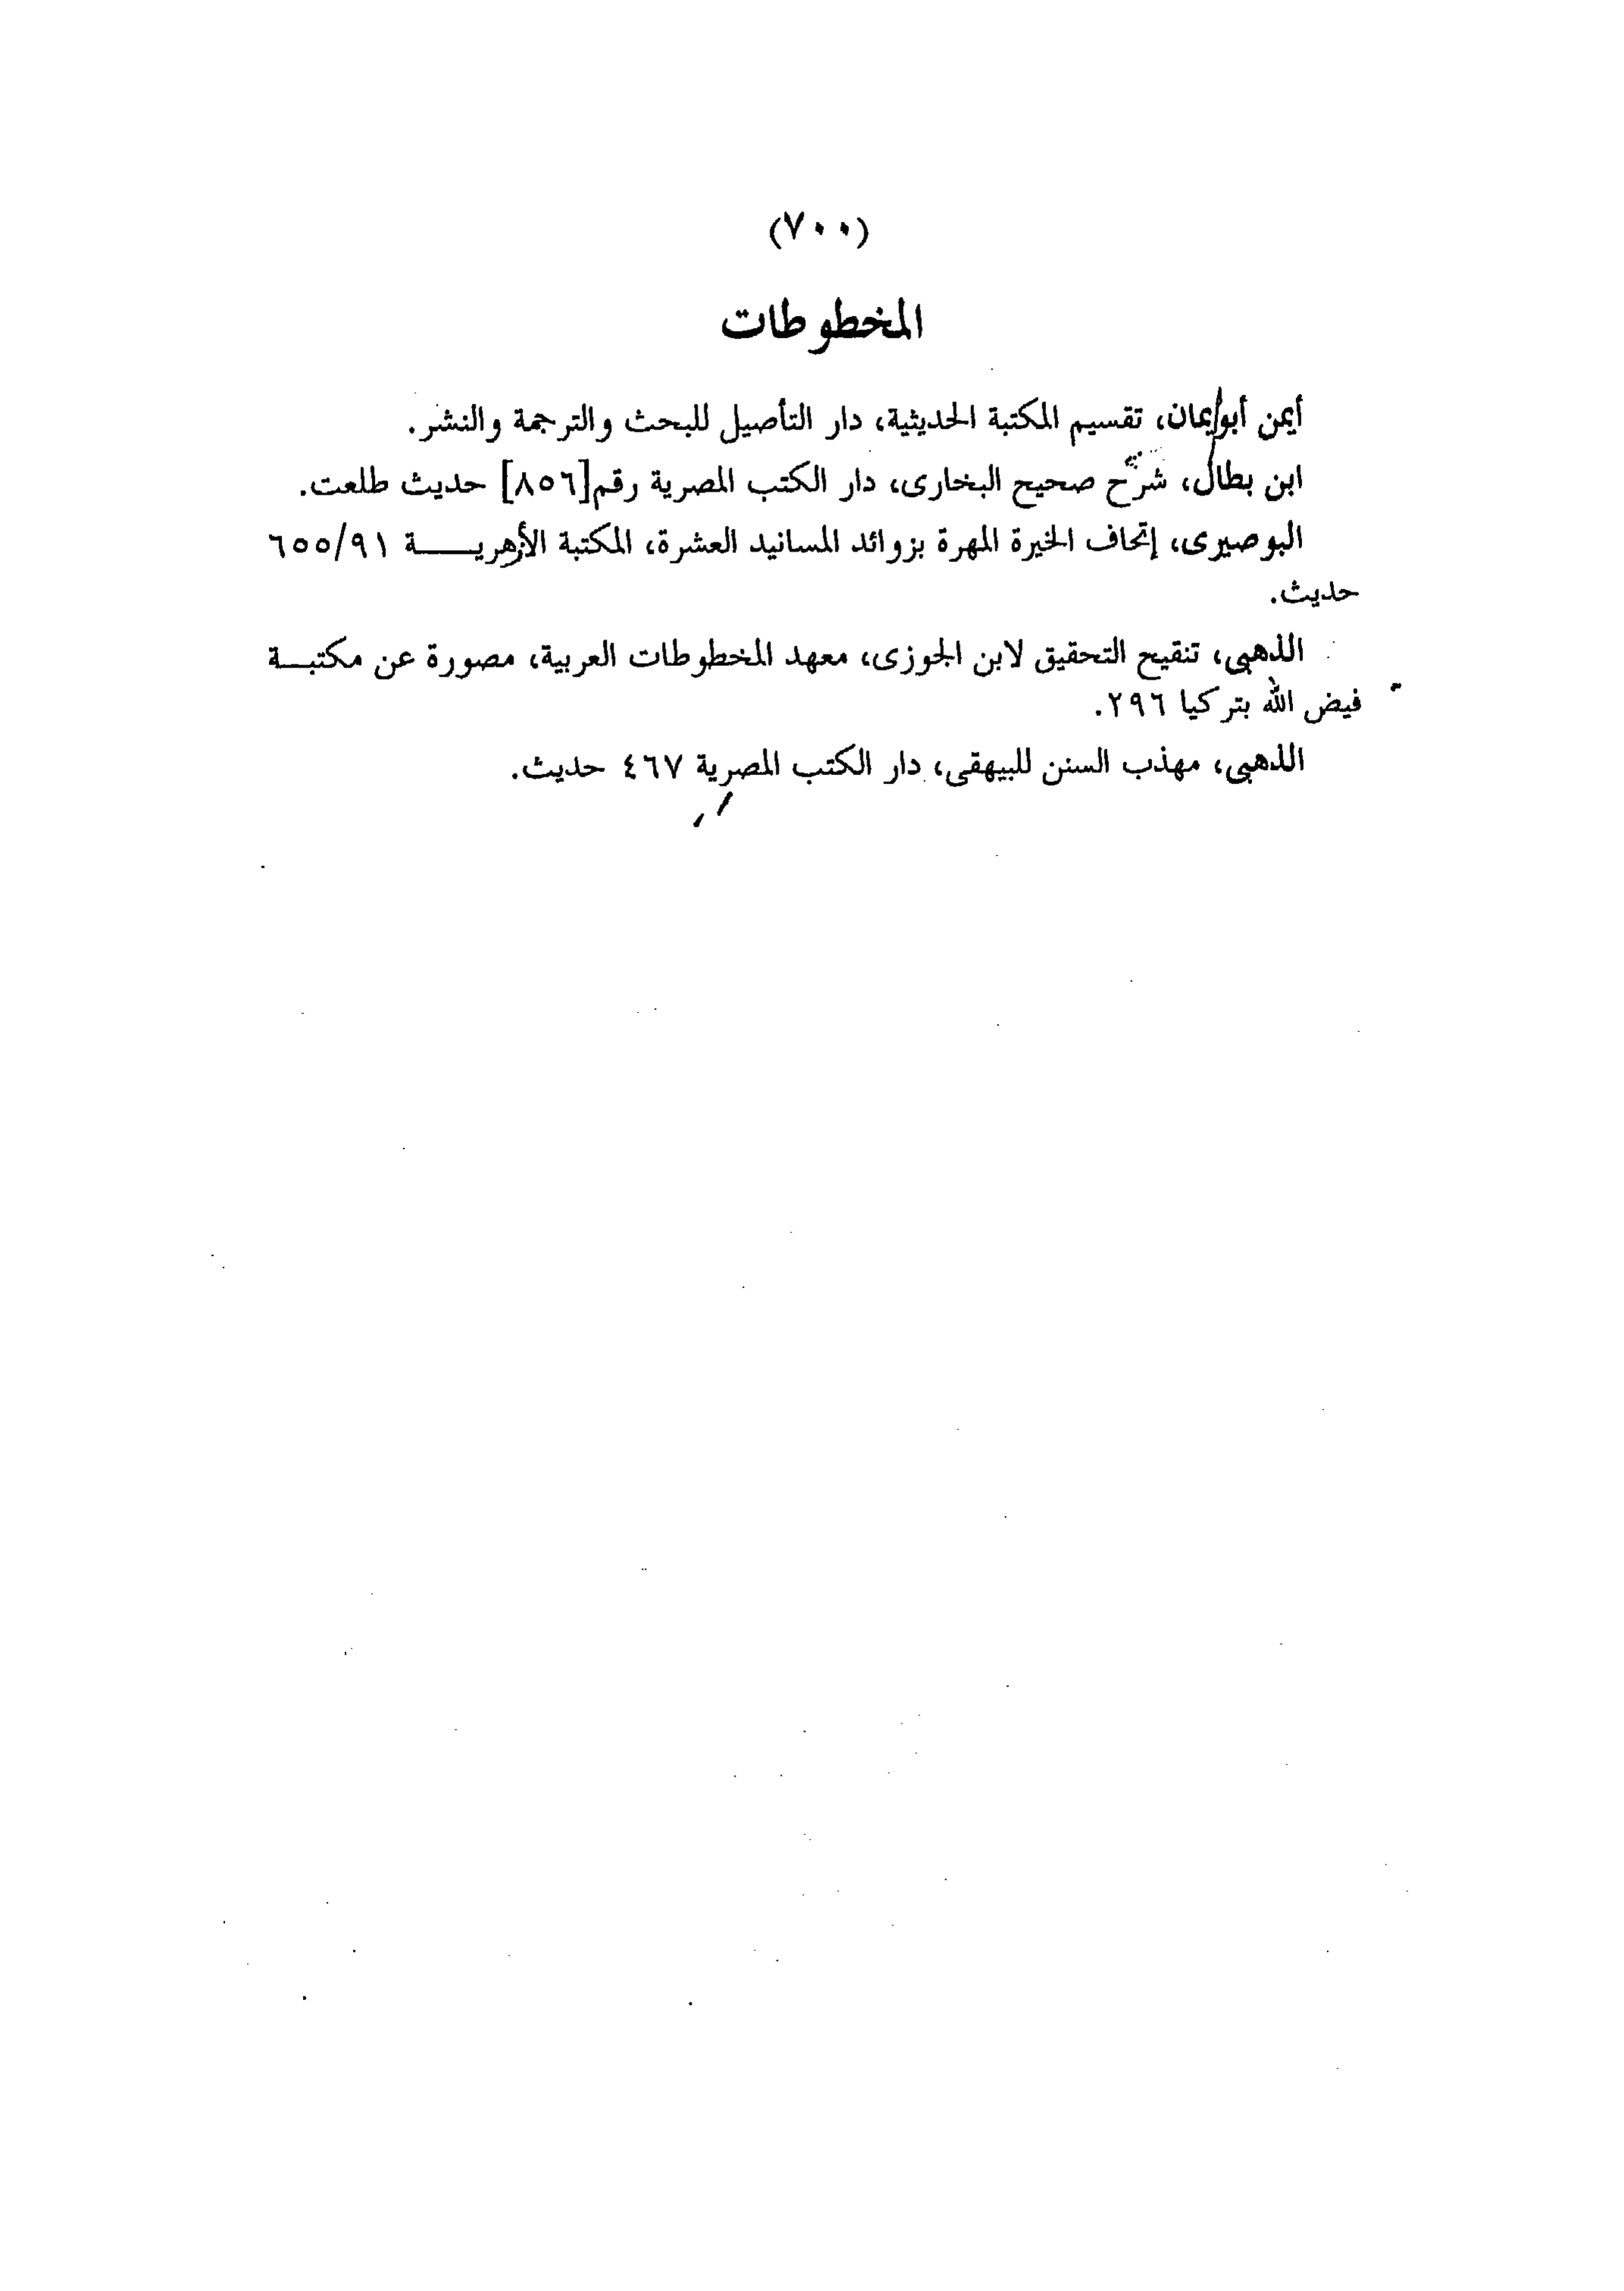 (٧٠٠)
المخطوطات
أيمن أبوإيمان، تقسيم المكتبة الحديثية، دار التأصيل للبحث والترجمة والنشر.
ابن بطال، شرح صحيح البخارى، دار الكتب المصرية رقم[٨٥٦] حديث طلعت.
البوصيرى، إتحاف الخيرة المهرة بزوائد المسانيد العشرة، المكتبة الأزهريـــــة ٦٥٥/٩١
حديث.
الذهبى، تنقيح التحقيق لابن الجوزى، معهد المخطوطات العربية، مصورة عن مكتبـــة
فيض الله بتركيا ٢٩٦.
الذهبى، مهذب السنن للبيهقى، دار الكتب المصرية ٤٦٧ حديث.